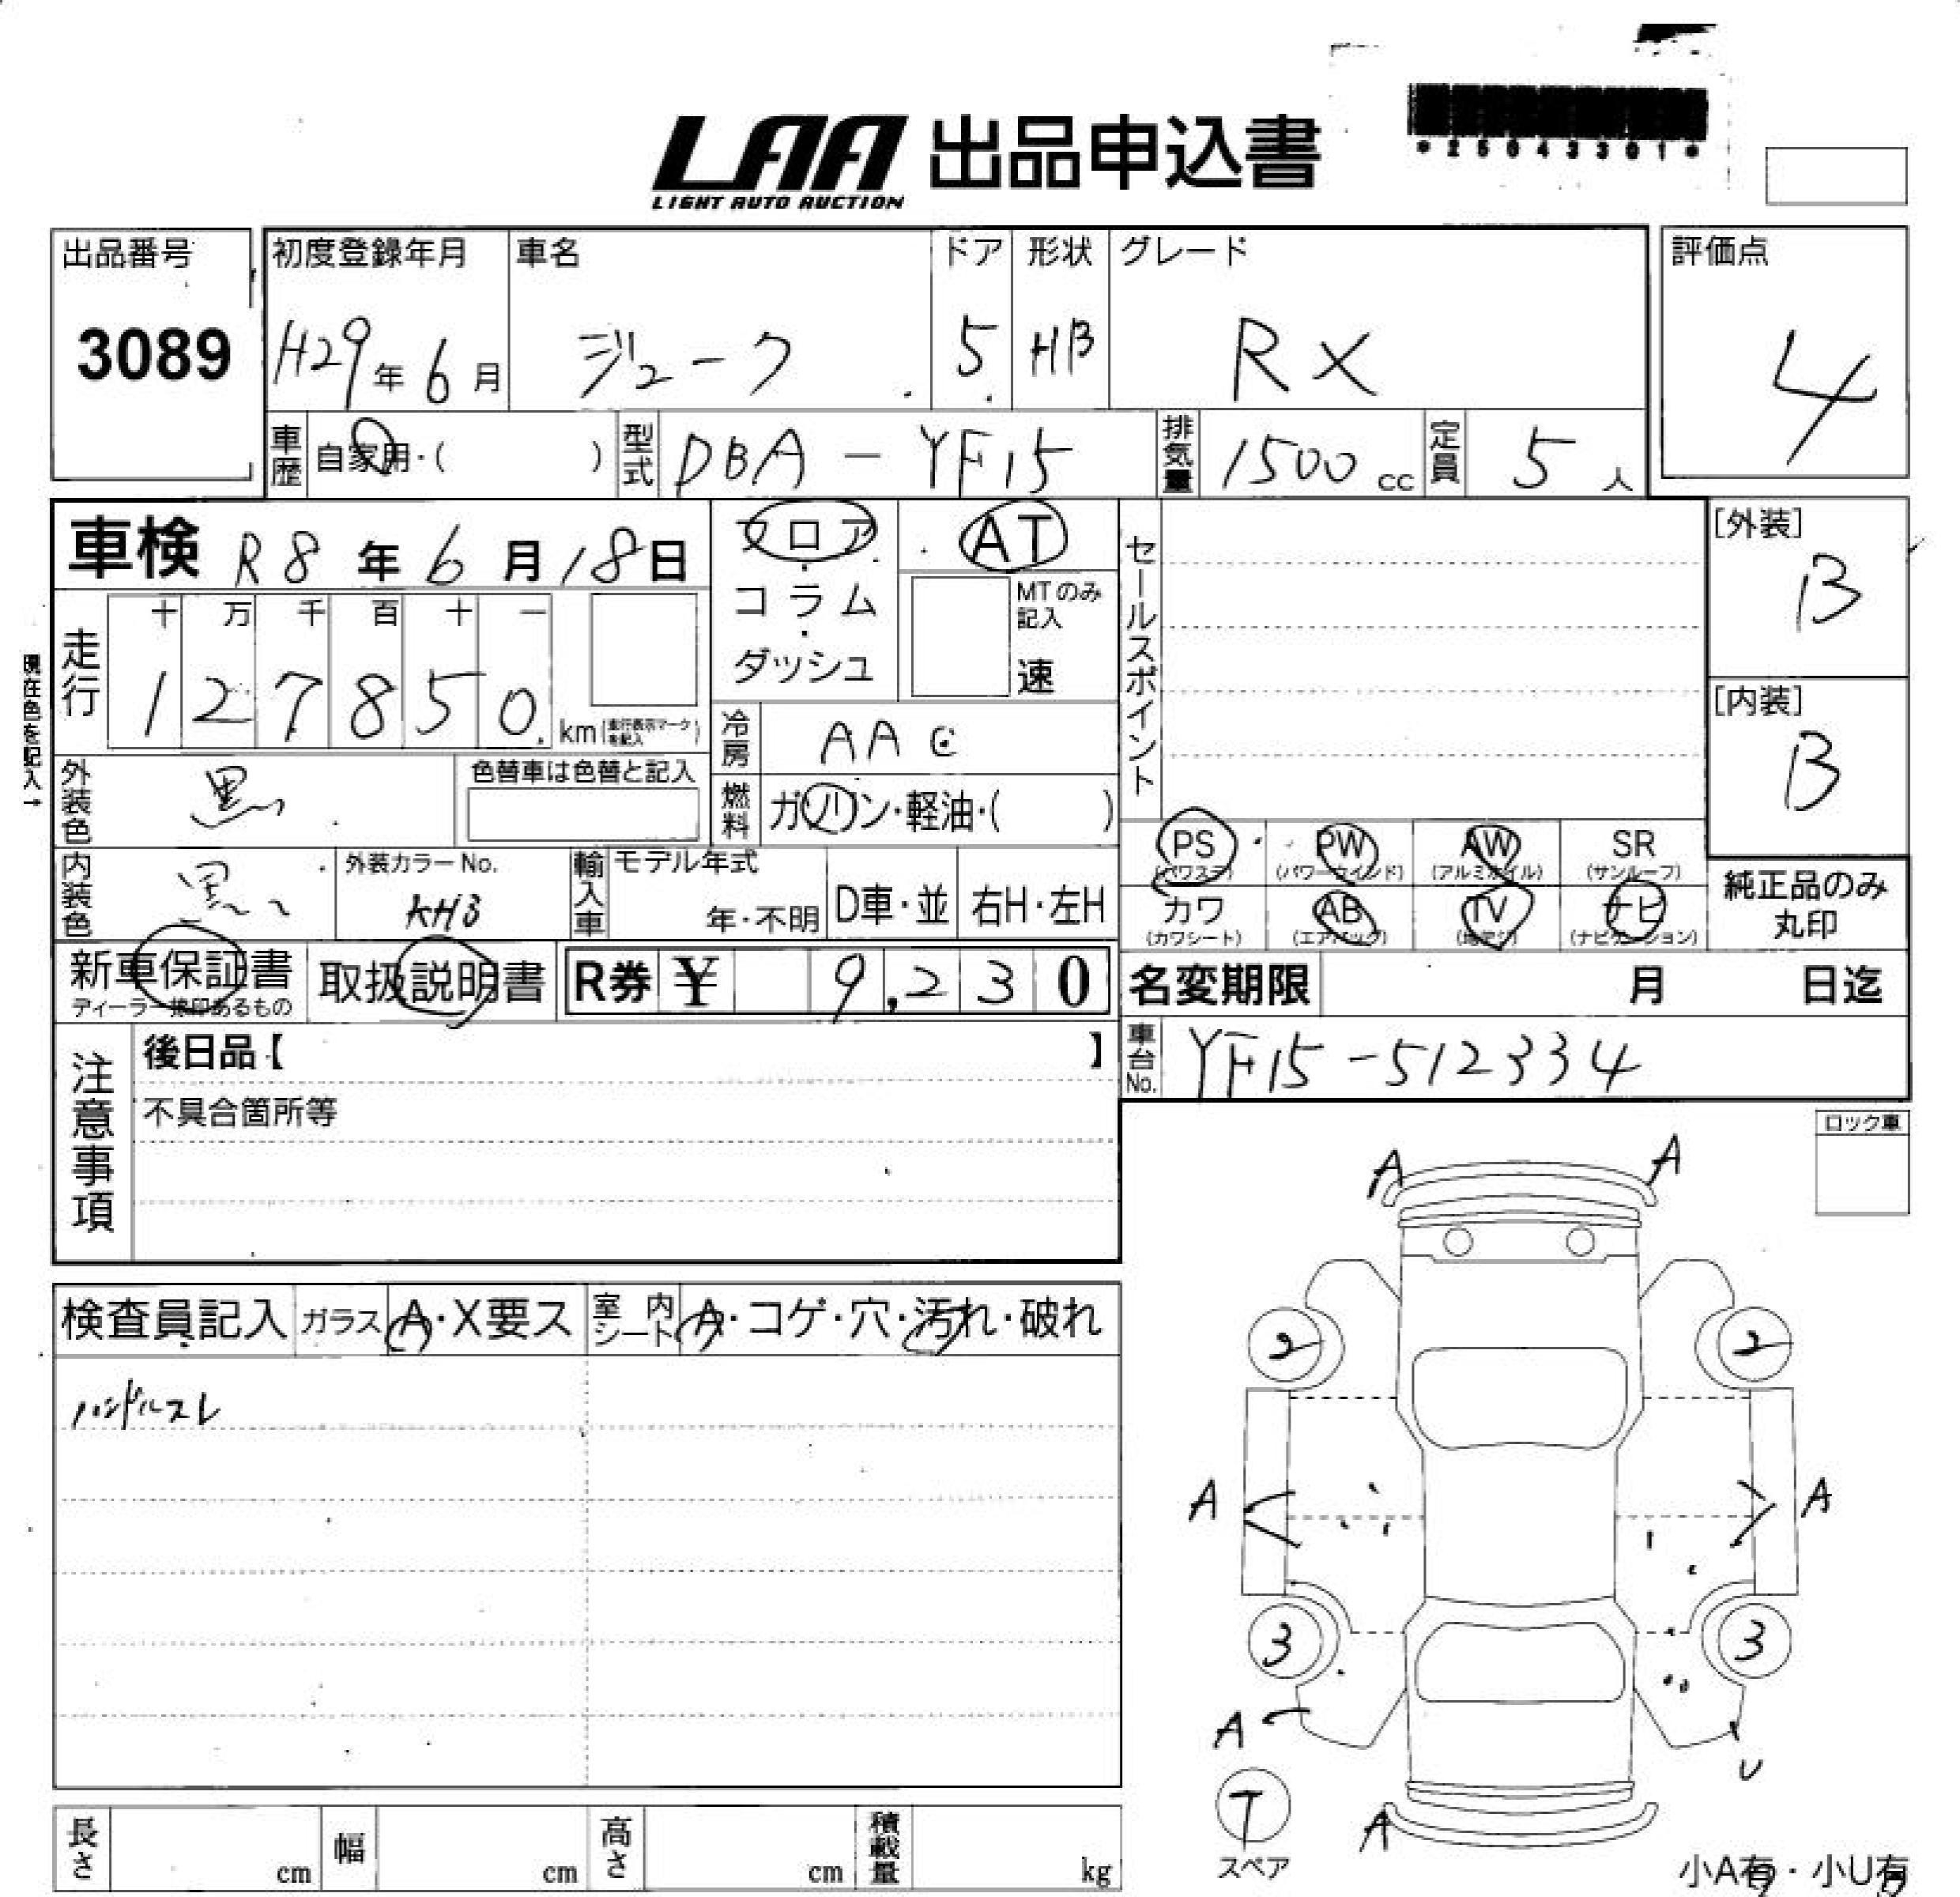 LAA 出品申込書
LIGHT AUTO AUCTION
*25043301*
出品番号 初度登録年月 車名 ドア 形状 グレード 評価点
3089 H29年6月 ジューク 5 HB RX 4
車歴 自家用・( ) 型式 DBA-YF15 排気量 1500cc 定員 5人
車検 R8年6月18日 フロア・コラム・ダッシュ AT
MTのみ記入 速
セールスポイント
[外装] B
現在色を記入→
走行 十万千百十一
127850 km(走行表示マークを記入)
[内装] B
冷房 AAC
外装色 黒 色替車は色替と記入
燃料 ガソリン・軽油・( )
PS (パワステ) PW (パワーウインド) AW (アルミホイル) SR (サンルーフ)
内装色 黒 外装カラーNo. KH3 輸入車 モデル年式 年・不明 D車・並 右H・左H
カワ (カワシート) AB (エアバック) TV (地デジ) ナビ (ナビゲーション)
純正品のみ丸印
新車保証書 ディーラー捺印あるもの 取扱説明書 R券 ¥ 9,230
名変期限 月 日迄
注意事項 後日品【 】
車台No. YF15-512334
不具合箇所等
ロック車
A A
検査員記入 ガラス A・X要ス 室内シート A・コゲ・穴・汚れ・破れ
2 2
ハンドルスレ
A A
3 3
A U
T A
スペア
長さ cm 幅 cm 高さ cm 積載量 kg
小A有・小U有